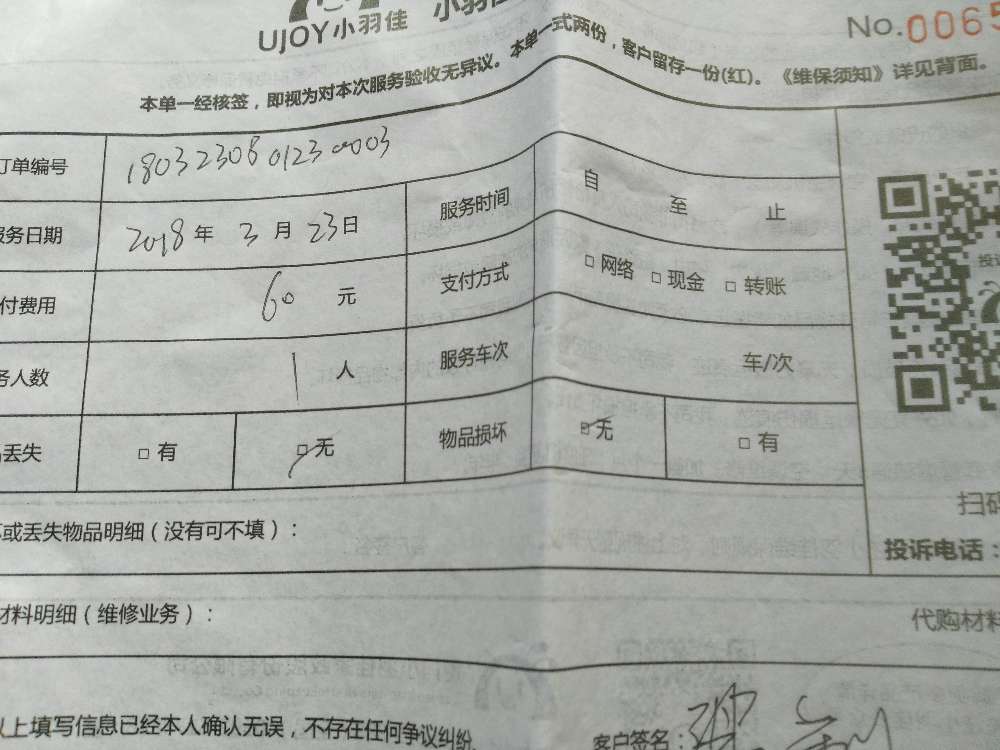 UJOY小羽佳 小羽佳
No.0065
本单一经核签，即视为对本次服务验收无异议。本单一式两份，客户留存一份(红)。《维保须知》详见背面。
订单编号 180323080123 0003
服务日期 2018 年 3 月 23 日 服务时间 自 至 止
付费用 60 元 支付方式 □ 网络 □ 现金 □ 转账
务人数 1 人 服务车次 车/次
丢失 □ 有 □ 无 物品损坏 □ 无 □ 有
或丢失物品明细（没有可不填）：
扫码
投诉电话：
材料明细（维修业务）：
代购材料
以上填写信息已经本人确认无误，不存在任何争议纠纷。
客户签名：